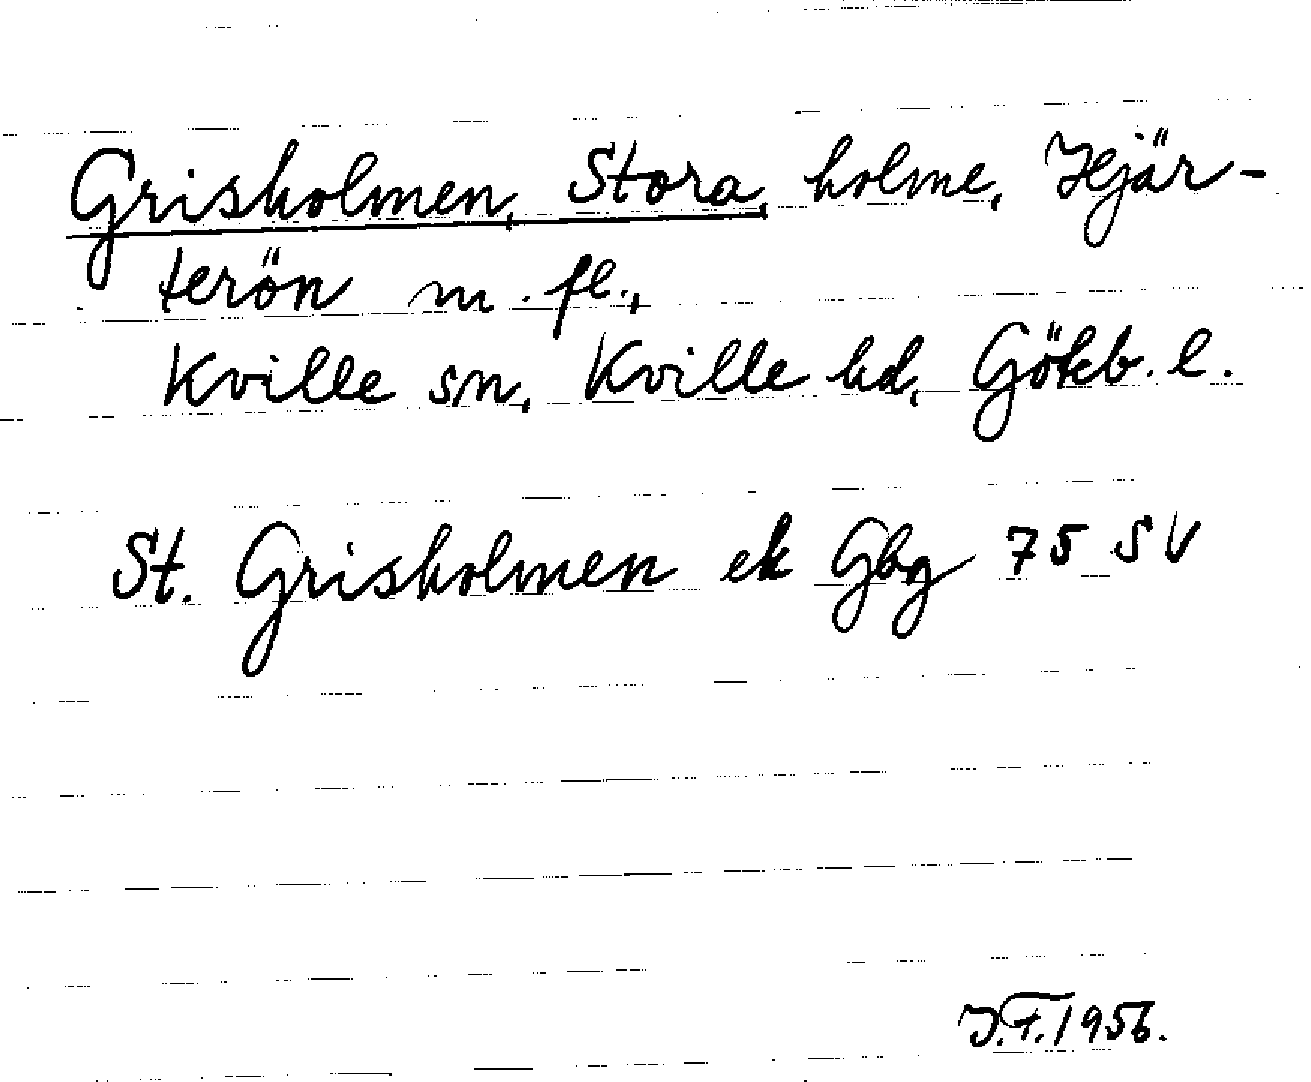 Grisholmen, Stora, holme, Hjär-
terön m. fl.,
Kville sn, Kville hd, Göteb. l.
St. Grisholmen ek Gbg 75 SV
J.F. 1956.